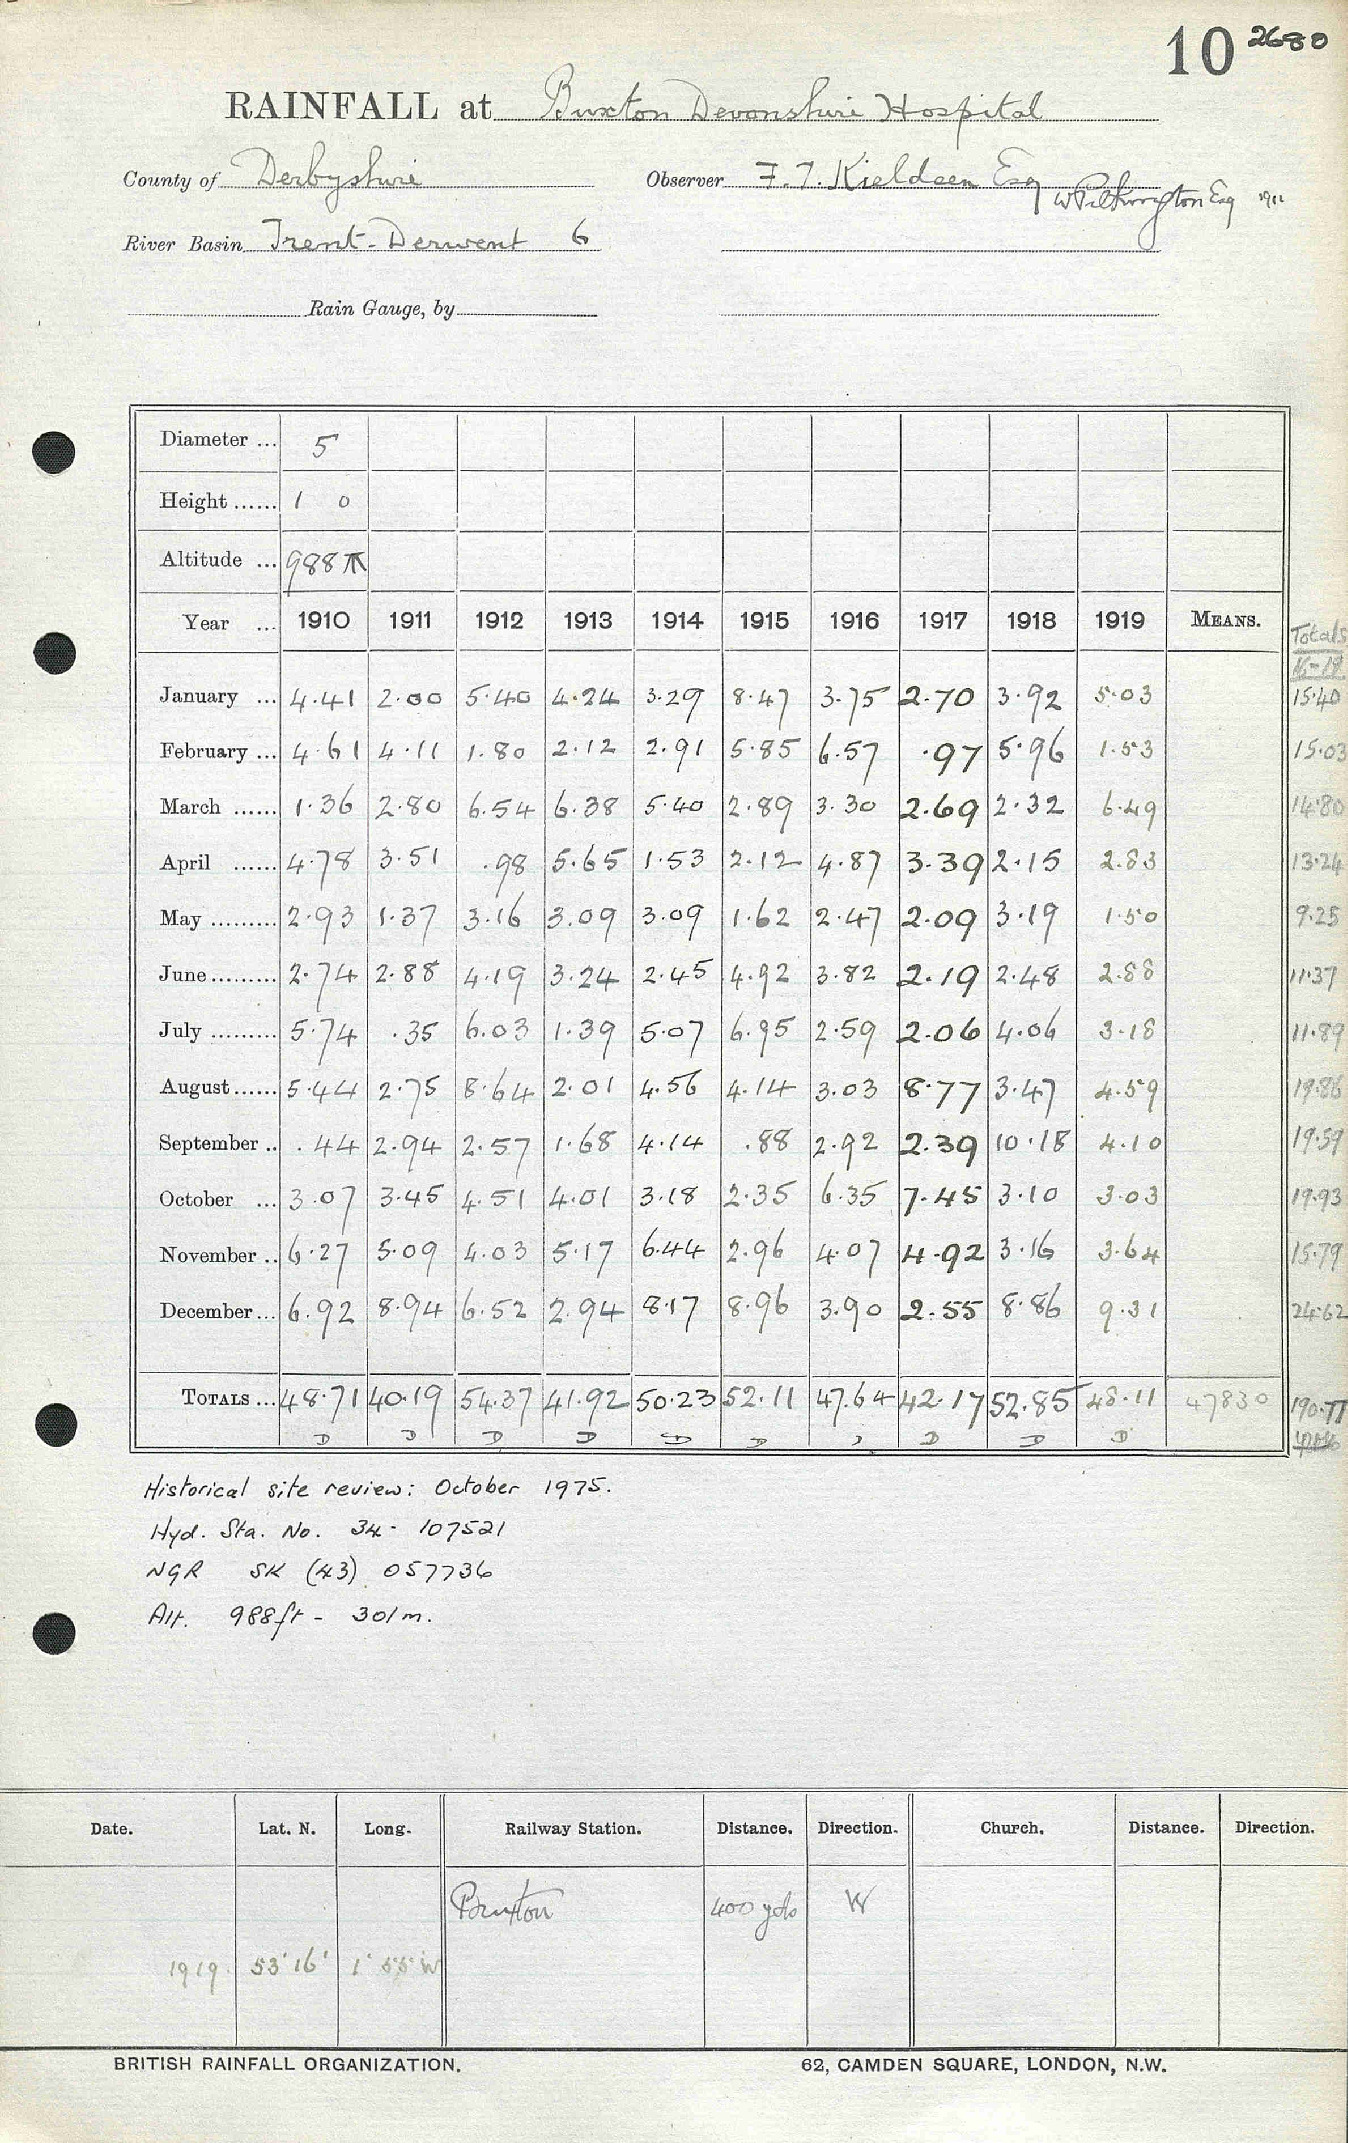 10 2680
RAINFALL at Buxton Devonshire Hospital
County of Derbyshire Observer F. T. Kieldsen Esq
W Pilkington Esq 1911
River Basin Trent-Derwent 6
Rain Gauge, by
Diameter ... 5
Height ...... 1 0
Altitude ... 988
Year ... 1910 1911 1912 1913 1914 1915 1916 1917 1918 1919 MEANS. Totals
January ... 4.41 2.00 5.40 4.24 3.29 8.47 3.75 2.70 3.92 5.03 15.40
February ... 4.61 4.11 1.80 2.12 2.91 5.85 6.57 .97 5.96 1.53 15.03
March ...... 1.36 2.80 6.54 6.38 5.40 2.89 3.30 2.69 2.32 6.49 14.80
April ...... 4.78 3.51 .98 5.65 1.53 2.12 4.87 3.39 2.15 2.83 13.24
May ......... 2.93 1.37 3.16 3.09 3.09 1.62 2.47 2.09 3.19 1.50 9.25
June ......... 2.74 2.88 4.19 3.24 2.45 4.92 3.82 2.19 2.48 2.88 11.37
July ......... 5.74 .35 6.03 1.39 5.07 6.95 2.59 2.06 4.06 3.18 11.89
August ...... 5.44 2.75 8.64 2.01 4.56 4.14 3.03 8.77 3.47 4.59 19.86
September .. .44 2.94 2.57 1.68 4.14 .88 2.92 2.39 10.18 4.10 19.59
October ... 3.07 3.45 4.51 4.01 3.18 2.35 6.35 7.45 3.10 3.03 19.93
November .. 6.27 5.09 4.03 5.17 6.44 2.96 4.07 4.92 3.16 3.64 15.79
December ... 6.92 8.94 6.52 2.94 8.17 8.96 3.90 2.55 8.86 9.31 24.62
TOTALS ... 48.71 40.19 54.37 41.92 50.23 52.11 47.64 42.17 52.85 48.11 47830 190.77
D D D D D D D D D
Historical site review: October 1975.
Hyd. Sta. No. 34- 107521
NGR SK (43) 057736
Alt. 988ft - 301m.
Date. Lat. N. Long. Railway Station. Distance. Direction. Church. Distance. Direction.
Buxton 400 yds W
1919. 53° 16' 1° 55' W
BRITISH RAINFALL ORGANIZATION. 62, CAMDEN SQUARE, LONDON, N.W.